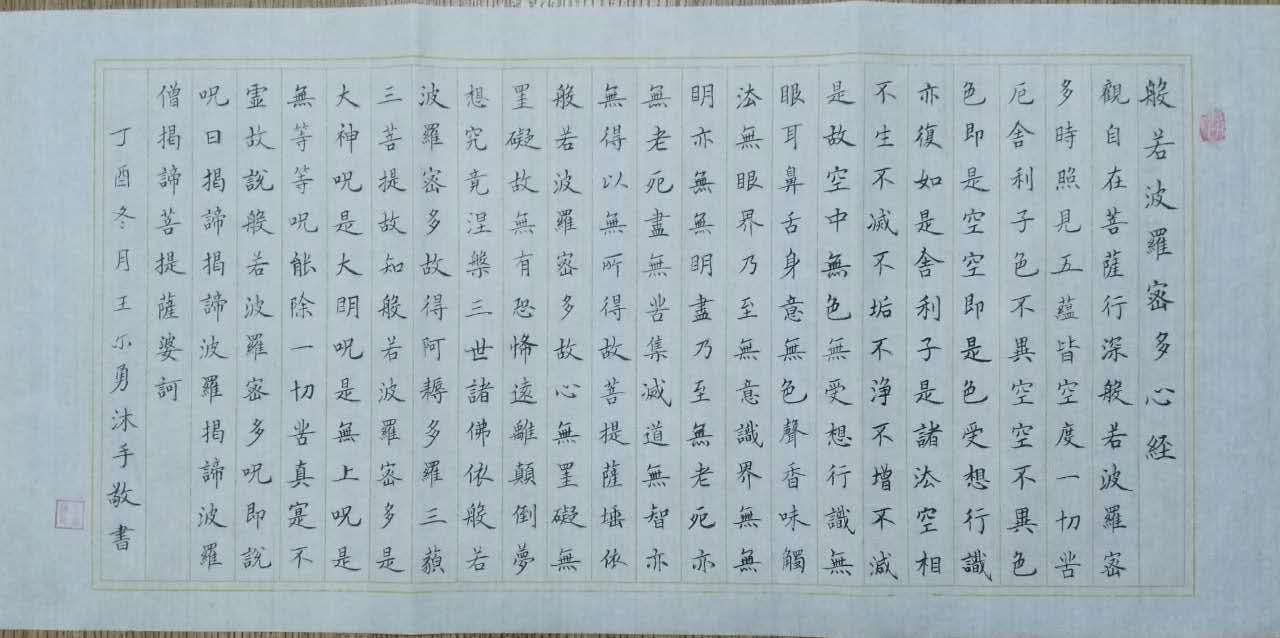 般若波羅密多心経
觀自在菩薩行深般若波羅密
多時照見五蘊皆空度一切苦
厄舍利子色不異空空不異色
色即是空空即是色受想行識
亦復如是舍利子是諸法空相
不生不滅不垢不淨不增不減
是故空中無色無受想行識無
眼耳鼻舌身意無色聲香味觸
法無眼界乃至無意識界無無
明亦無無明盡乃至無老死亦
無老死盡無苦集滅道無智亦
無得以無所得故菩提薩埵依
般若波羅密多故心無罣礙無
罣礙故無有恐怖遠離顛倒夢
想究竟涅槃三世諸佛依般若
波羅密多故得阿耨多羅三藐
三菩提故知般若波羅密多是
大神呪是大明呪是無上呪是
無等等呪能除一切苦真寔不
虛故說般若波羅密多呪即說
呪曰揭諦揭諦波羅揭諦波羅
僧揭諦菩提薩婆訶
丁酉冬月王尓勇沐手敬書